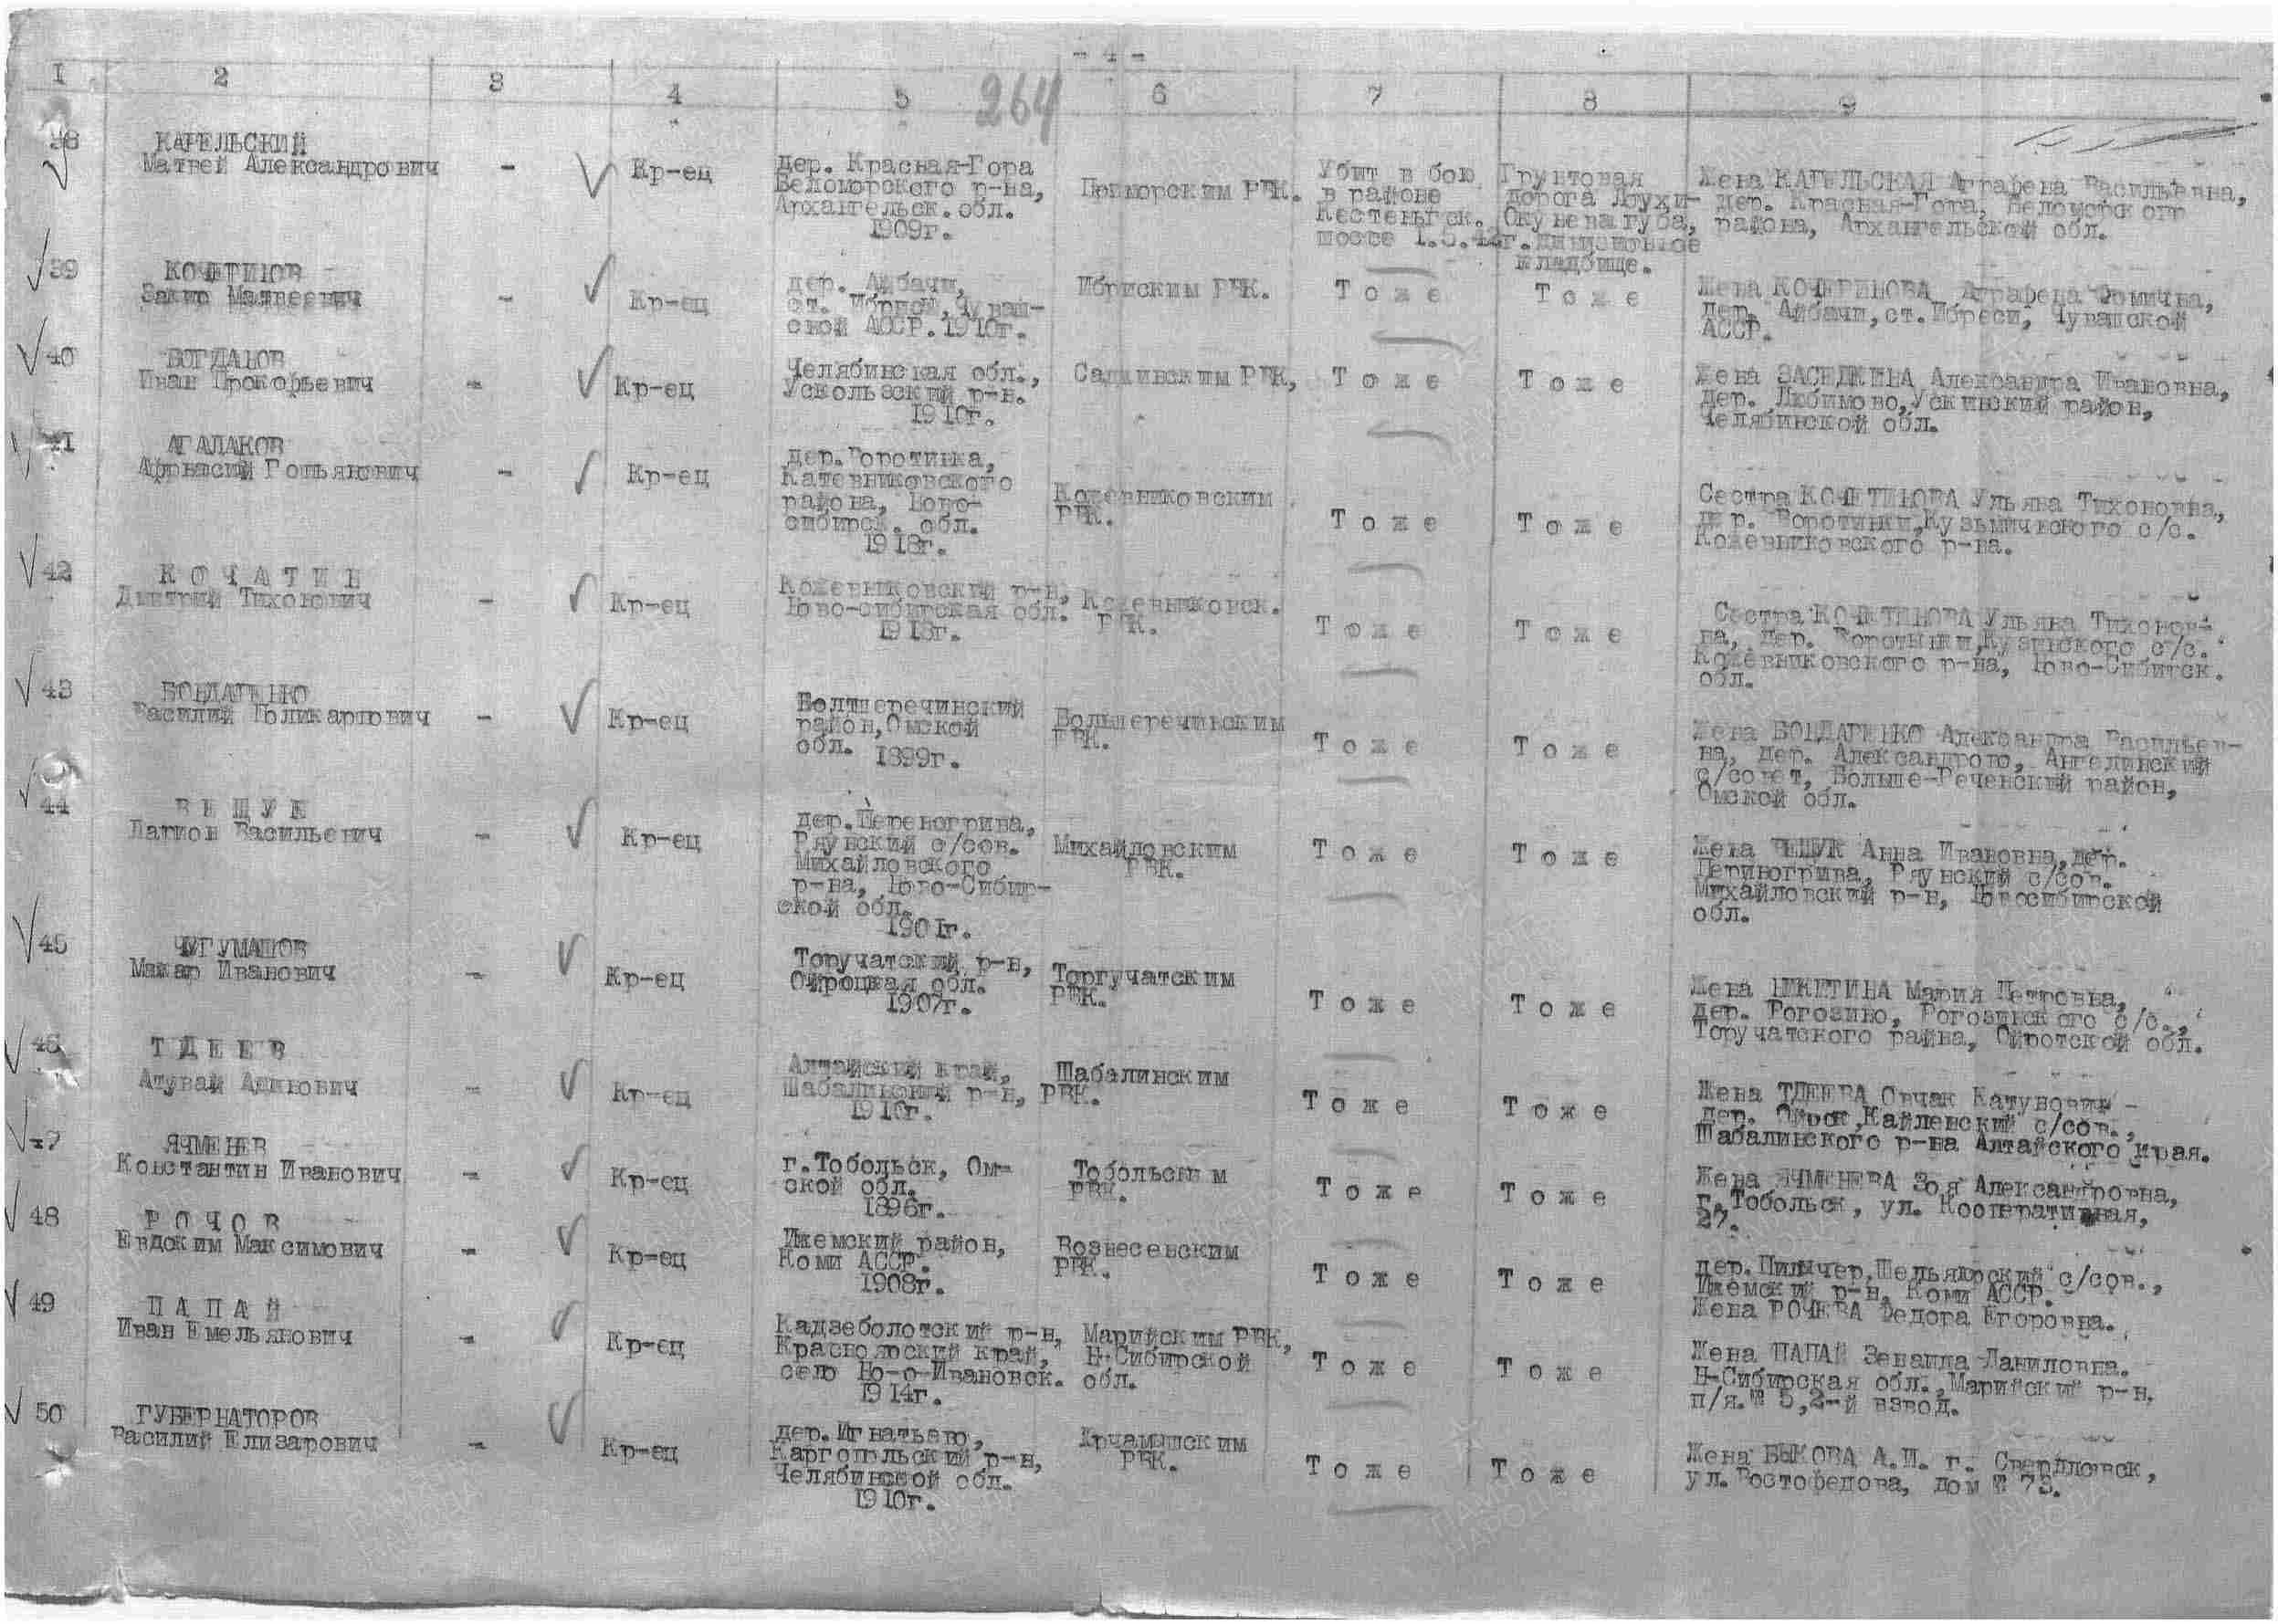 - 4 -
I 2 3 4 5 6 7 8 9
264
38
КАРЕЛЬСКИЙ
Матвей Александрович
-
Кр-ец
дер. Красная-Гора
Беломорского р-на,
Архангельск. обл.
1909г.
Приморским РВК.
Убит в бою
в районе
Кестеньгск.
шоссе 1.5.42г.
Грунтовая
дорога Лоухи-
Окунева губа,
кладбище.
Жена КАРЕЛЬСКАЯ Аграфена Васильевна,
дер. Красная-Гора, Беломорског
района, Архангельской обл.
39
Матвеевич
-
Кр-ец
дер. Айбачи,
ст. Ибреси, Чуваш-
ской АССР. 1910г.
Ибриским РВК.
Т о ж е
Т о ж е
Жена КОЧЕРИНОВА Аграфена Фомична,
дер. Айбачи, ст. Ибреси, Чувашской
АССР.
40
БОГДАНОВ
Иван Прокофьевич
-
Кр-ец
Челябинская обл.,
Ускольский р-н.
1910г.
РВК,
Т о ж е
Т о ж е
Жена Александра Ивановна,
дер. Любимово, район,
Челябинской обл.
41
АГАЛАКОВ
Афонасий
-
Кр-ец
дер. Воротинка,
Катевниковского
района, Ново-
сибирск. обл.
1918г.
Кожевниковским
РВК.
Т о ж е
Т о ж е
Сестра КОЧЕТИНОВА Ульява Тихоновна,
дер. Воротинки, с/с.
Кожевниковского р-на.
42
К О Ч А Т И Н
Дмитрий Тихонович
-
Кр-ец
Кожевниковский р-н,
Ново-сибирская обл.
1918г.
Кожевниковск.
РВК.
Т о ж е
Т о ж е
Сестра КОЧЕТИНОВА Ульява Тихонов-
на, дер. Воротынки, с/с.
Кожевниковского р-на, Ново-Сибитск.
обл.
43
БОНДАРЕНКО
Василий Поликарпович
-
Кр-ец
Болтшеречинский
район, Омской
обл. 1899г.
Большеречинским
РВК.
Т о ж е
Т о ж е
Жена БОНДАРЕНКО Александра Васильев-
на, дер. Александрово, Ангелинский
с/совет, Больше-Реченский район,
Омской обл.
44
Васильевич
-
Кр-ец
дер. Переногрива,
Ряунский с/сов.
Михайловского
р-на, Ново-Сибир-
ской обл.
1901г.
Михайловским
РВК.
Т о ж е
Т о ж е
Жена Анна Ивановна, дер.
Териногрива, Ряунский с/сов.
Михайловский р-н, Новосибирской
обл.
45
ЧУГУМАШОВ
Макар Иванович
-
Кр-ец
Торучатский р-н,
Ойроцкая обл.
1907г.
Торгучатским
РВК.
Т о ж е
Т о ж е
Жена НИКИТИНА Мария Петровна,
дер. Рогозино, Рогозинского с/с.,
Торучатского райва, Ойротской обл.
46
Т Д Е Е В
Атувай
-
Кр-ец
Алтайский край,
Шабалинский р-н,
1916г.
Шабалинским
РВК.
Т о ж е
Т о ж е
Жена ТДЕЕВА Катунович -
дер. Кайленский с/сов.,
Шабалинского р-на Алтайского края.
47
ЯЧМЕНЕВ
Константин Иванович
-
Кр-ец
г.Тобольск, Ом-
ской обл.
1896г.
Тобольским
РВК.
Т о ж е
Т о ж е
Жена ЯЧМЕНЕВА Зоя Александровна,
г.Тобольск, ул. Кооперативная,
27.
48
Р О Ч О В
Евдоким Максимович
-
Кр-ец
Ижемский район,
Коми АССР.
1908г.
Вознесевским
РВК.
Т о ж е
Т о ж е
дер. Шельяюрский с/сов.,
Ижемский р-н, Коми АССР.
Жена РОЧЕВА Федора Егоровна.
49
П А П А Й
Иван Емельянович
-
Кр-ец
Кадзеболотский р-н,
Красноярский край,
село Но-о-Ивановск.
1914г.
Марийским РВК,
Н-Сибирской
обл.
Т о ж е
Т о ж е
Жена ПАПАЙ Зенаида Даниловна.
Н-Сибирская обл., Марийский р-н.
п/я.№ 5,2-й взвод.
50
ГУБЕРНАТОРОВ
Василий Елизарович
-
Кр-ец
дер. Игнатьево,
Каргопольский р-н,
Челябинской обл.
1910г.
РВК.
Т о ж е
Т о ж е
Жена БЫКОВА А.И. г. Свердловск,
ул. Ростофедова, дом № 73.